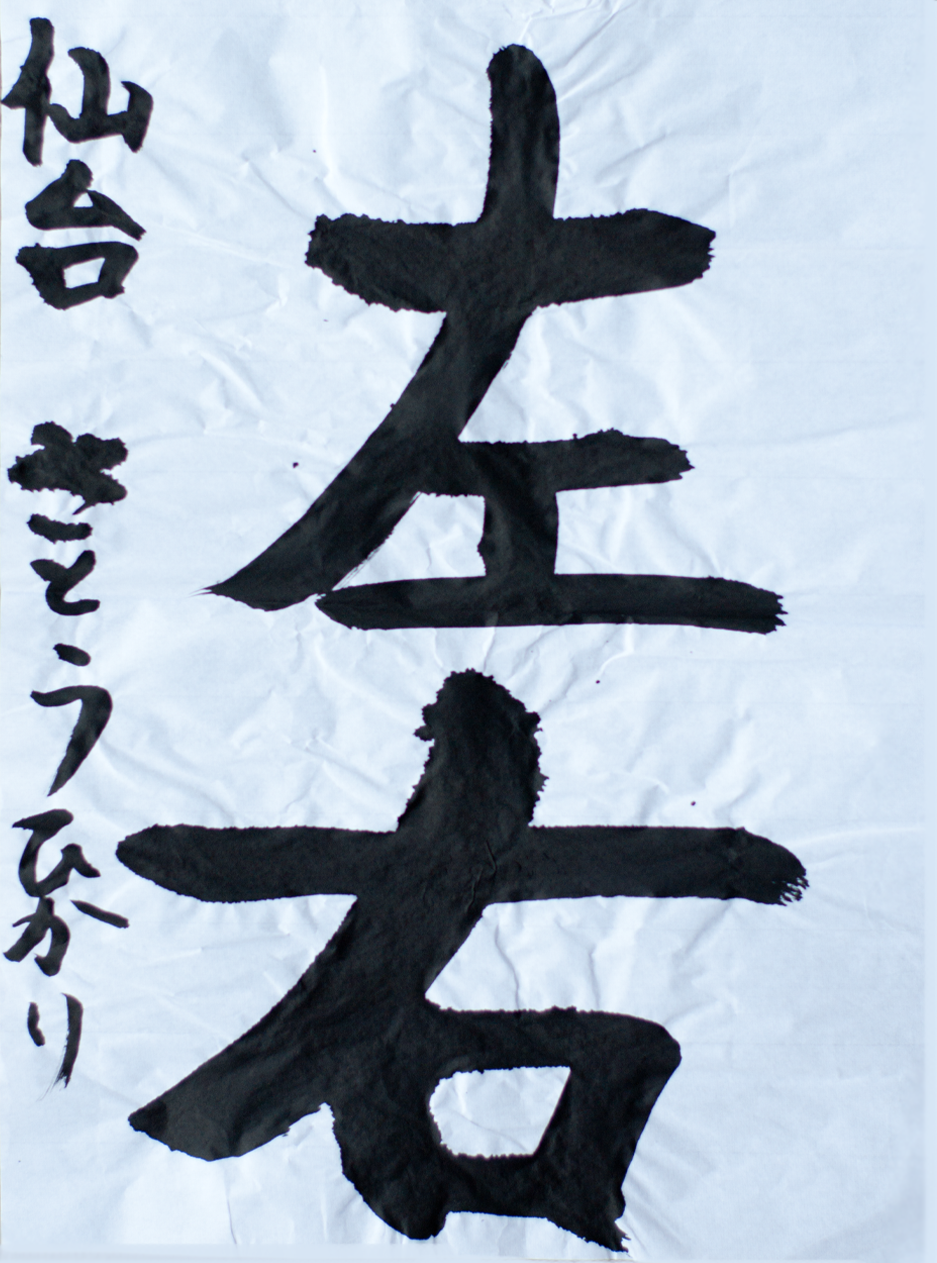 左右
仙台 さとうひかり